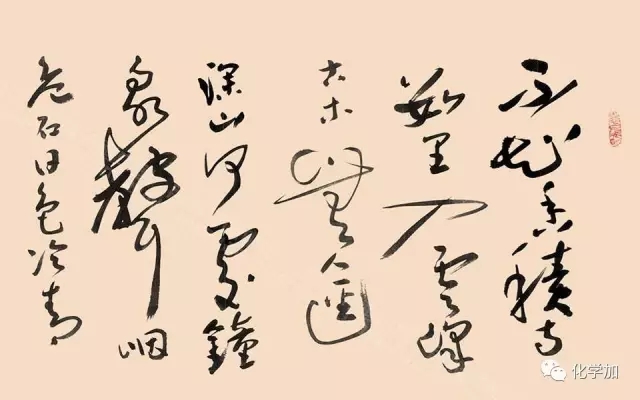 不知香積寺
數里入雲峰
古木無人徑
深山何處鐘
泉聲咽
危石日色冷青
化学加